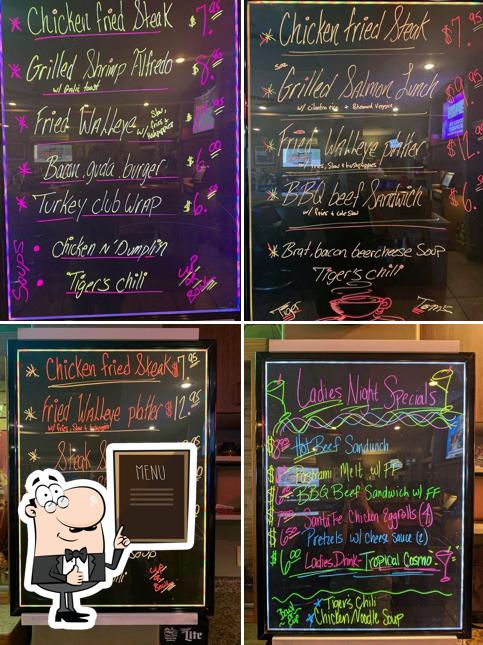 * Chicken fried Steak $7.95
* Grilled Shrimp Alfredo $8.95
w/ Garlic toast
* Fried Walleye
Slaw, fries & hushpuppies
* Bacon guda burger $6.00
* Turkey club WRAP $6.
Soups
• Chicken N' Dumplin
• Tiger's chili
CUP or Bowl
* Chicken fried Steak $7.95
* Grilled Salmon Lunch $9.95
w/ cilantro rice + Steamed Veggies
* Fried Walleye platter $12.
fries, Slaw & hushpuppies
* BBQ beef Sandwich $6.
w/ fries & cole slaw
* Brat, bacon beercheese Soup
Tiger's chili
* Chicken fried Steak $7.95
* fried Walleye platter $12.95
w/ fries, Slaw & hushpuppies
* Steak S
MENU
Soup
CUP or Bowl
Lite
Ladies Night Specials
Hot Beef Sandwich
Pastrami Melt w/ FF
BBQ Beef Sandwich w/ FF
Santa Fe Chicken Eggrolls (4)
$6.50 Pretzels w/ Cheese Sauce (2)
$6.00 Ladies Drink- Tropical Cosmo
Bowl
* Tiger's Chili
* Chicken Noodle Soup